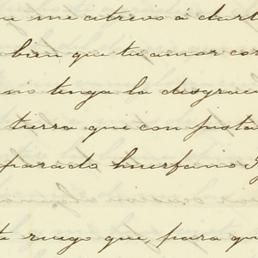 me atrevo á dart
bien que tu amor cor
no tenga la desgrac
tierra que con justa
parado huerfano y
te ruego que, para qu